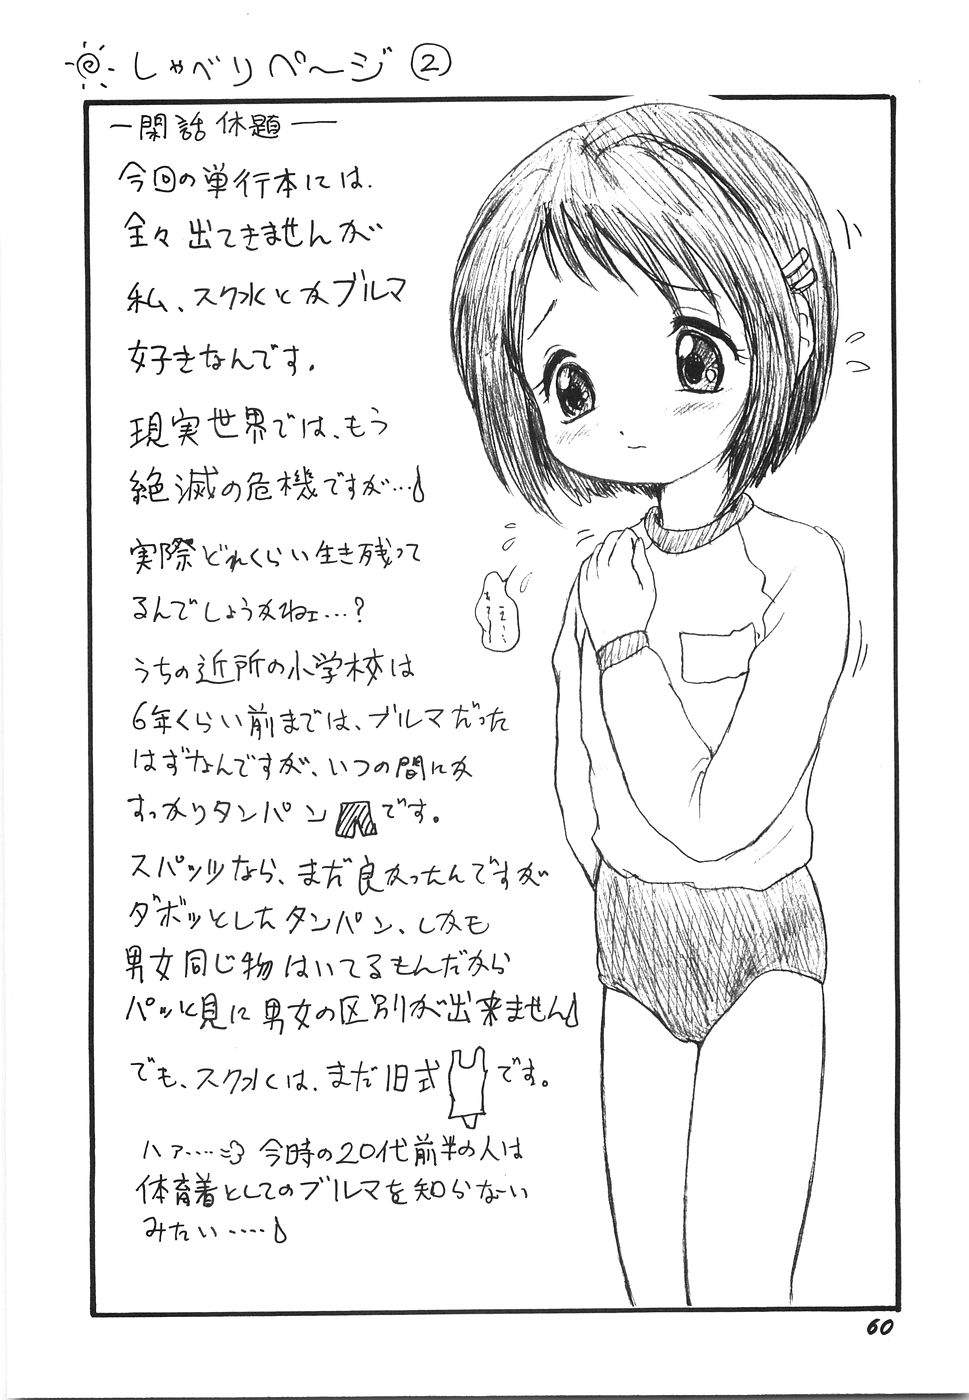 しゃべりページ②
―閑話休題―
今回の単行本には、
全々出てきませんが
私、スク水とかブルマ
好きなんです。
現実世界では、もう
絶滅の危機ですが…
実際どれくらい生き残って
るんでしょうかねェ…?
うちの近所の小学校は
6年くらい前までは、ブルマだった
はずなんですが、いつの間にか
すっかりタンパンです。
スパッツなら、まだ良かったんですが
ダボッとしたタンパン、しかも
男女同じ物はいてるもんだから
パッと見に男女の区別が出来ません
でも、スク水は、まだ旧式です。
ハァ‥‥今時の20代前半の人は
体育着としてのブルマを知らない
みたい‥‥
60